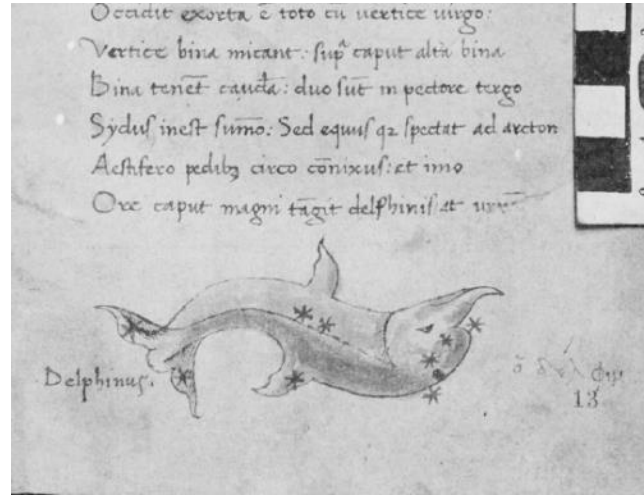 Occidit exorta ē toto cū uertice uirgo:
Vertice bina micant: supᵃ caput alta bina
Bina tenēt cauda: duo sūt in pectore tergo
Sydus inest summo: Sed equus qꝫ spectat ad arcton
Aestifero pedibꝫ circo cōnixus: et imo
Ore caput magni tāgit delphinis et
Delphinus.
13